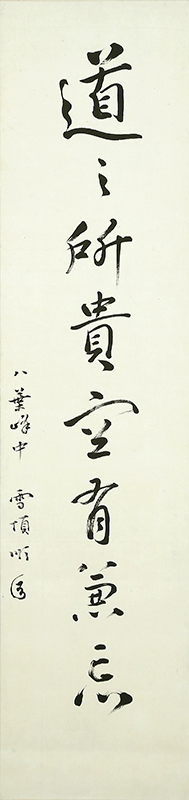 道之所貴空有兼忘
八葉峰中 雪頂順